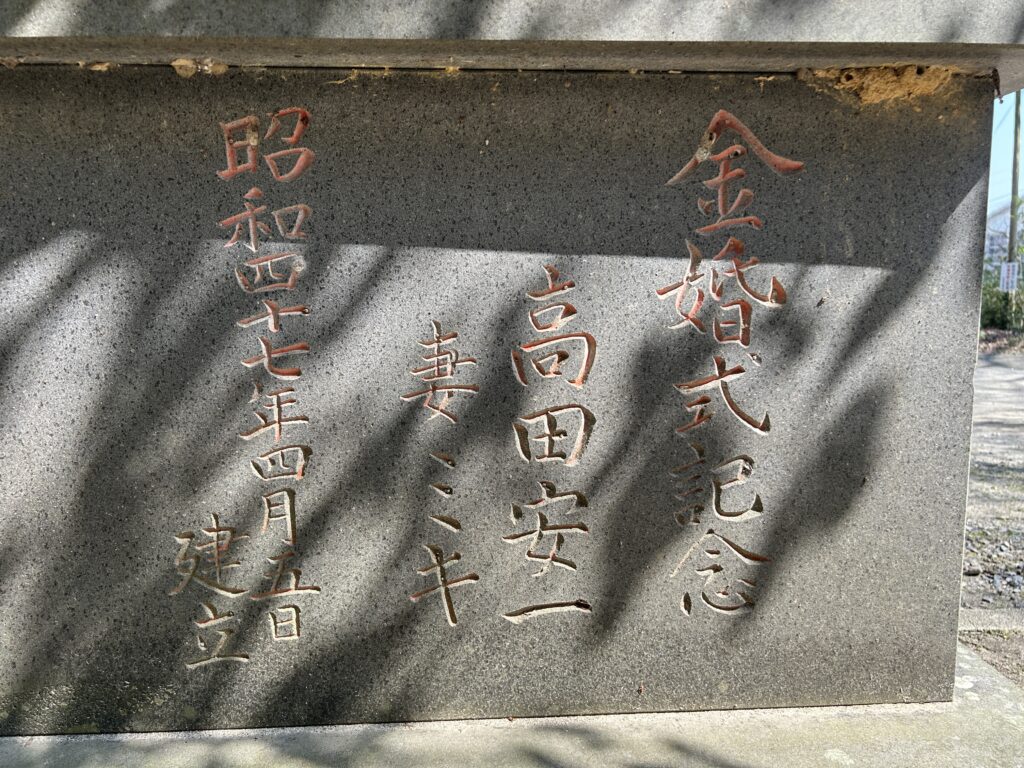 金婚式記念
高田安一
妻ミキ
昭和四十七年四月五日
建立